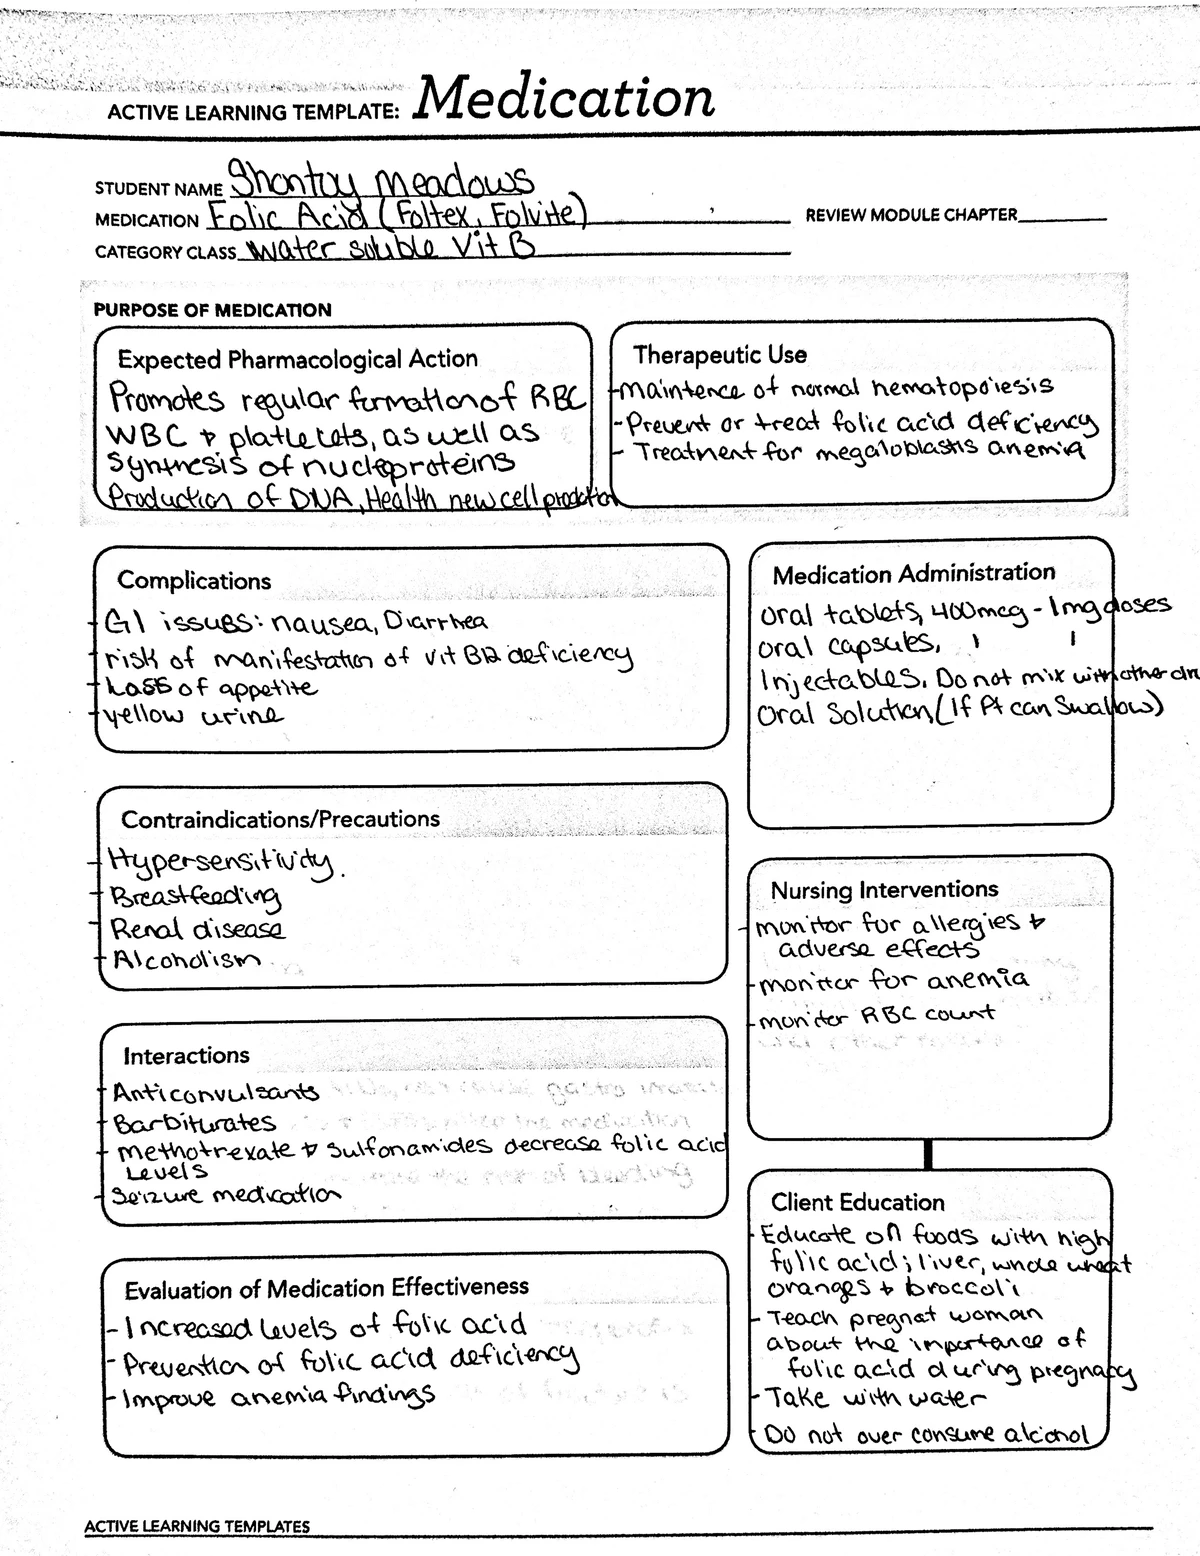 ACTIVE LEARNING TEMPLATE: Medication
STUDENT NAME Shontoy Meadows
MEDICATION Folic Acid (Foltex, Folvite)
REVIEW MODULE CHAPTER
CATEGORY CLASS Water soluble Vit B
PURPOSE OF MEDICATION
Expected Pharmacological Action
Promotes regular formation of RBC
WBC & platletets, as well as
Synthesis of nucleoproteins
Production of DNA, Health new cell prodction
Therapeutic Use
-maintence of normal hematopoiesis
-Prevent or treat folic acid deficiency
- Treatment for megaloblastis anemia
Complications
- GI issues: nausea, Diarrhea
- risk of manifestation of vit B12 deficiency
- Loss of appetite
- yellow urine
Contraindications/Precautions
- Hypersensitivity.
- Breastfeeding
- Renal disease
- Alcoholism
Interactions
- Anticonvulsants
- Barbiturates
- methotrexate & sulfonamides decrease folic acid
Levels
- Seizure medication
Evaluation of Medication Effectiveness
- Increased levels of folic acid
- Prevention of folic acid deficiency
- Improve anemia findings
Medication Administration
oral tablets, 400mcg - 1mg doses
oral capsules,
Injectables. Do not mix with other dru
Oral Solution, (If Pt can Swallow)
Nursing Interventions
- monitor for allergies &
adverse effects
- monitor for anemia
- monitor RBC count
Client Education
- Educate on foods with high
folic acid; liver, whole wheat
oranges & broccoli
- Teach pregnat woman
about the importance of
folic acid during pregnacy
- Take with water
- Do not over consume alcohol
ACTIVE LEARNING TEMPLATES